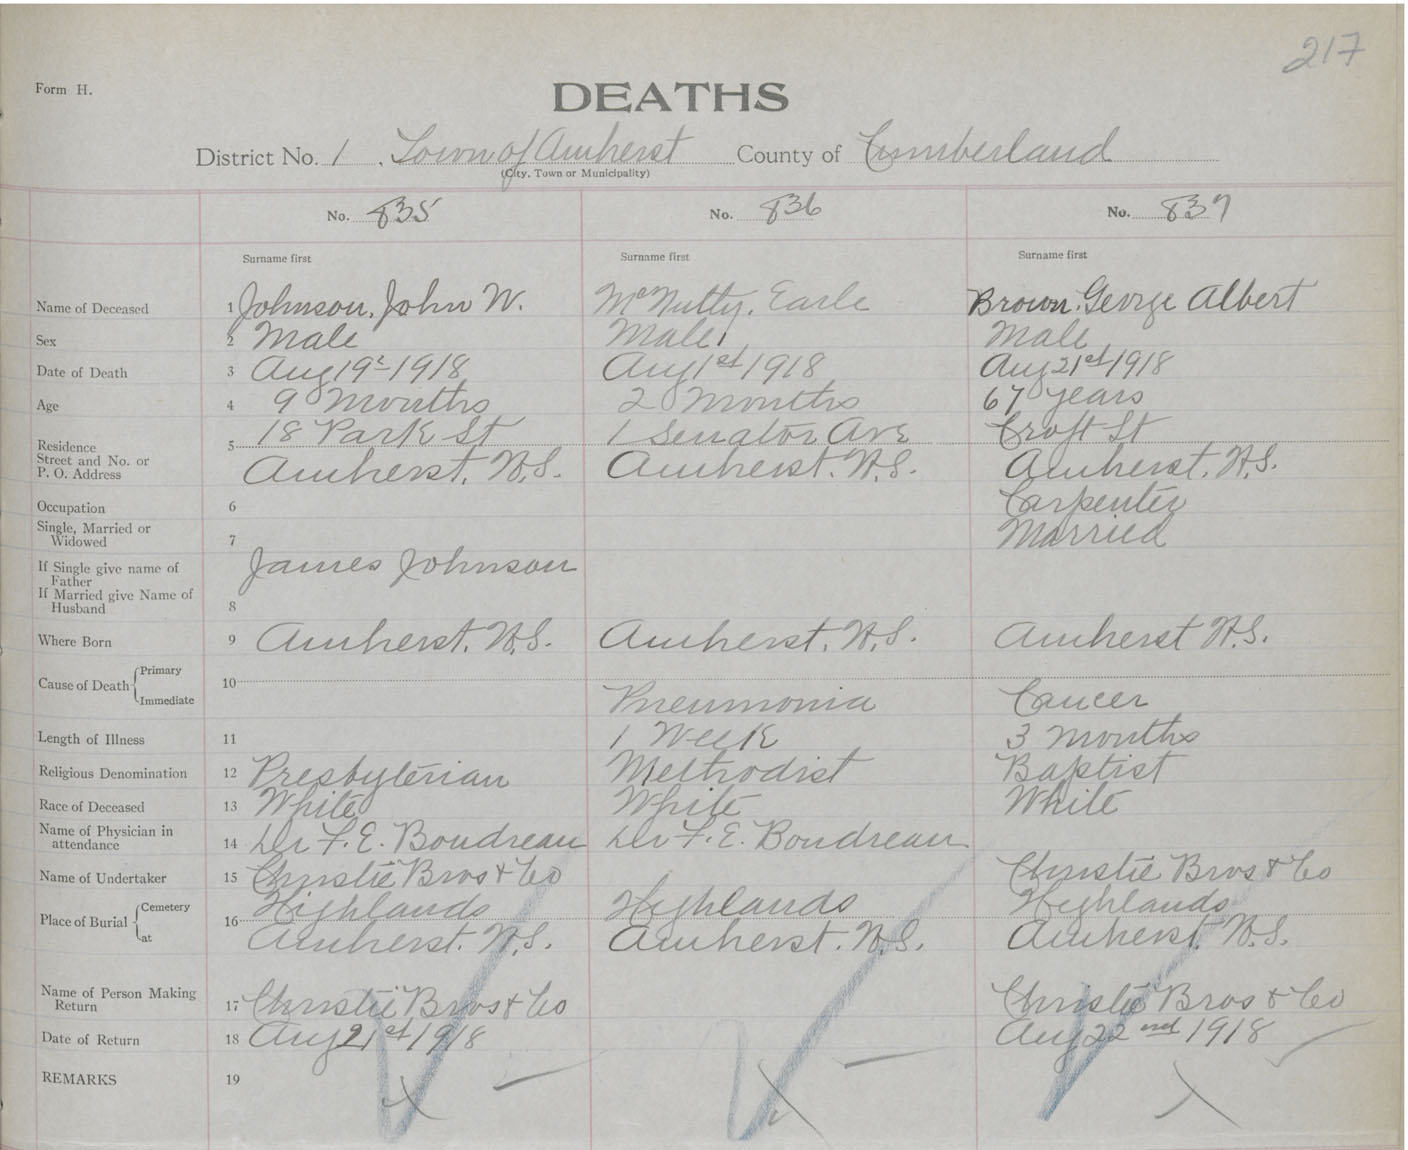 217
Form H.
DEATHS
District No. 1, Town of Amherst County of Cumberland
(City, Town or Municipality)
No. 835 No. 836 No. 837
Surname first Surname first Surname first
Name of Deceased 1 Johnson, John W. McNutty, Earle Brown, George Albert
Sex 2 Male Male Male
Date of Death 3 Aug 19 1918 Aug 1st 1918 Aug 21st 1918
Age 4 9 Months 2 Months 67 years
Residence 5 18 Park St 1 Senator Ave Croft St
Street and No. or
P. O. Address Amherst, N.S. Amherst, N.S. Amherst, N.S.
Occupation 6 Carpenter
Single, Married or
Widowed 7 Married
If Single give name of
Father James Johnson
If Married give Name of
Husband 8
Where Born 9 Amherst, N.S. Amherst, N.S. Amherst N.S.
Cause of Death Primary 10
Immediate Pneumonia Cancer
Length of Illness 11 1 Week 3 Months
Religious Denomination 12 Presbyterian Methodist Baptist
Race of Deceased 13 White White White
Name of Physician in
attendance 14 Dr F. E. Boudreau Dr F. E. Boudreau
Name of Undertaker 15 Christie Bros & Co Christie Bros & Co
Place of Burial Cemetery 16 Highlands Highlands Highlands
at Amherst, N.S. Amherst, N.S. Amherst, N.S.
Name of Person Making
Return 17 Christie Bros & Co Christie Bros & Co
Date of Return 18 Aug 21st 1918 Aug 22nd 1918
REMARKS 19